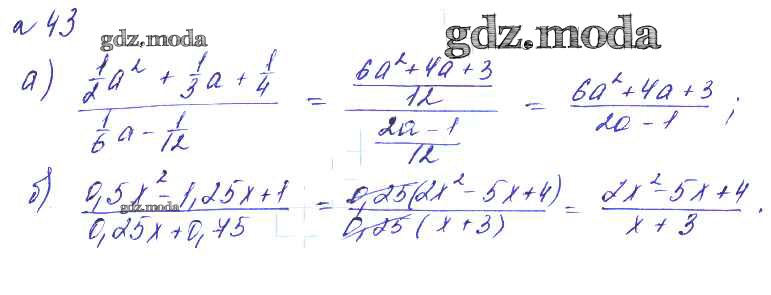 № 43
gdz.moda
gdz.moda
а) (1/2 a² + 1/3 a + 1/4) / (1/6 a - 1/12) = ((6a² + 4a + 3)/12) / ((2a - 1)/12) = (6a² + 4a + 3) / (2a - 1) ;
б) (0,5x² - 1,25x + 1) / (0,25x + 0,75) = (0,25(2x² - 5x + 4)) / (0,25(x + 3)) = (2x² - 5x + 4) / (x + 3) .
gdz.moda